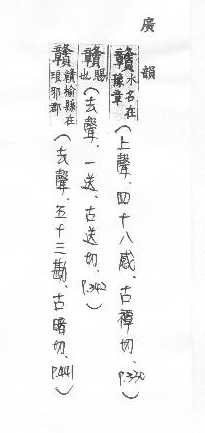 廣韻
贛水名在豫章(上聲、四十八感、古禫切、P.330)
贛賜也(去聲、一送、古送切、P.342)
贛贛榆縣在琅邪郡(去聲、五十三勘、古暗切、P.441)